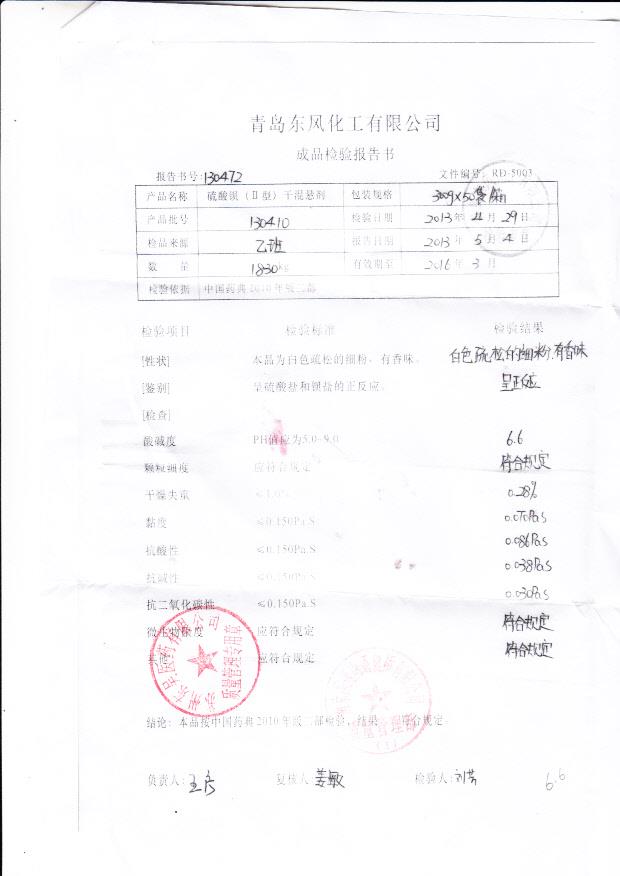 青岛东风化工有限公司
成品检验报告书
报告书号:130472 文件编号: RD-5003
产品名称 硫酸钡（II型）干混悬剂 包装规格 300g×50袋/箱
产品批号 130410 检验日期 2013年 4月 29日
检品来源 乙班 报告日期 2013年 5月 4日
数 量 1830kg 有效期至 2016年 3月
检验依据 中国药典2010年版二部
检验项目 检验标准 检验结果
[性状] 本品为白色疏松的细粉，有香味。 白色疏松的细粉,有香味
[鉴别] 呈硫酸盐和钡盐的正反应。 呈正反应
[检查]
酸碱度 PH值应为5.0-9.0 6.6
颗粒细度 应符合规定 符合规定
干燥失重 ≤1.0% 0.28%
黏度 ≤0.150Pa.S 0.070Pa.s
抗酸性 ≤0.150Pa.S 0.086Pa.s
抗碱性 ≤0.150Pa.S 0.038Pa.s
抗二氧化碳性 ≤0.150Pa.S 0.030Pa.s
微生物限度 应符合规定 符合规定
其他 应符合规定 符合规定
质量管理专用章
结论: 本品按中国药典2010年版二部检验，结果 符合规定。
负责人: 复核人 姜敏 检验人: 刘芳 6.6